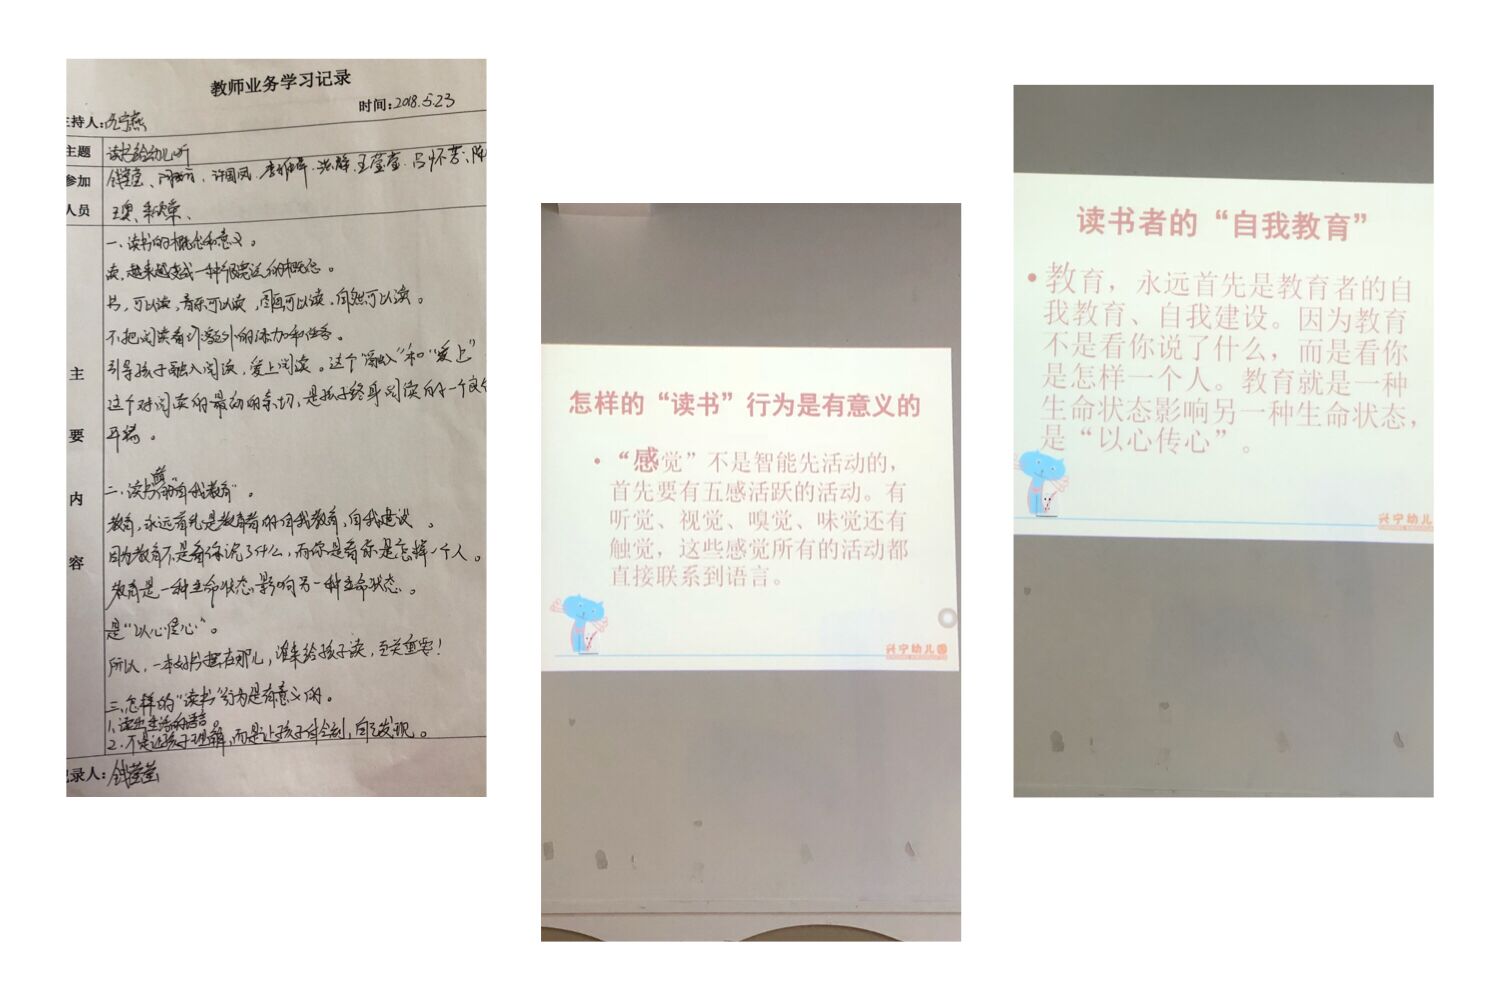 教师业务学习记录
时间:2018.5.23
主持人:
主题 读书给幼儿听
参加
人员
许国凤 王莹莹
主要内容
一、读书的概念和意义。
读,越来越变成一种很宽泛的概念。
书,可以读,音乐可以读,图画可以读,自然可以读。
不把阅读看作额外的添加和任务。
引导孩子融入阅读,爱上阅读。这个“融入”和“爱上”
这个对阅读的最初的亲切,是孩子终身阅读的一个
开端。
二、读书者的“自我教育”。
教育,永远首先是教育者的自我教育,自我建设。
因为教育不是看你说了什么,而你是看你是怎样一个人。
教育是一种生命状态影响另一种生命状态。
是“以心传心”。
所以,一本好书摆在那儿,谁来给孩子读,至关重要!
三、怎样的“读书”行为是有意义的。
1.读出生活的语言。
2.不是让孩子理解,而是让孩子体会到,自己发现。
记录人:钱莹莹
怎样的“读书”行为是有意义的
•“感觉”不是智能先活动的,
首先要有五感活跃的活动。有
听觉、视觉、嗅觉、味觉还有
触觉,这些感觉所有的活动都
直接联系到语言。
兴宁幼儿园
读书者的“自我教育”
•教育,永远首先是教育者的自
我教育、自我建设。因为教育
不是看你说了什么,而是看你
是怎样一个人。教育就是一种
生命状态影响另一种生命状态,
是“以心传心”。
兴宁幼儿